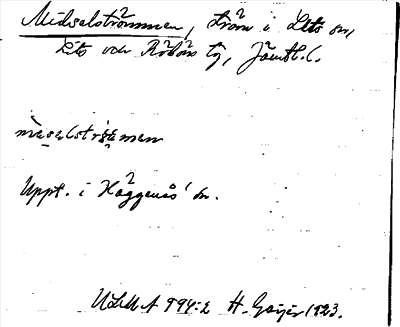 Midselströmmen, Ström i Lits sn,
Lits och Rödöns tg, Jämtl. l.
mèsəlstrǿmən
Uppt. i Häggenås' sn.
ULMA 994:2 H. Geijer 1923.